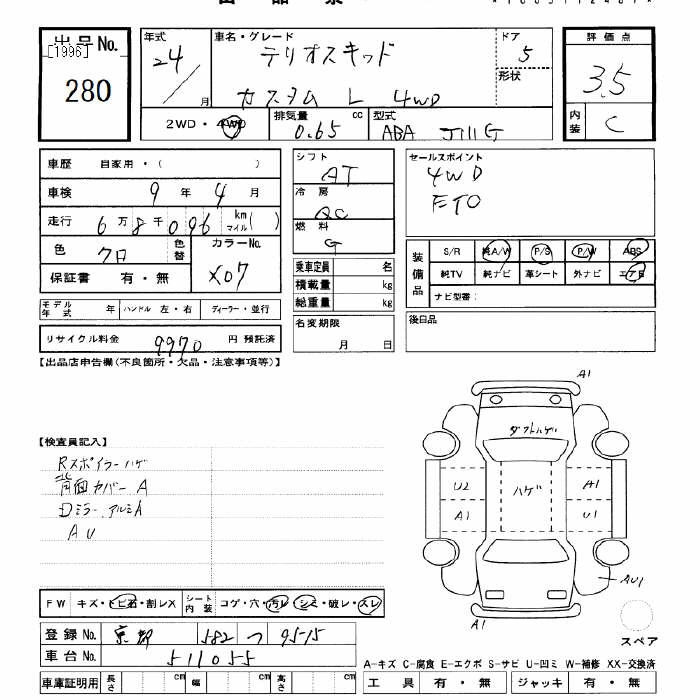 出品No.
[1996]
280
年式 24 / 月
車名・グレード テリオスキッド
カスタム L 4WD
ドア 5
形状
評価点 3.5
内装 C
2WD・4WD
排気量 0.65 cc
型式 ABA J111G
車歴 自家用・( )
車検 9年 4月
走行 6万8千096 km マイル( )
色 クロ 色替
カラーNo. X07
保証書 有・無
モデル年式 年 ハンドル 左・右 ディーラー・並行
リサイクル料金 9970 円 預託済
シフト AT
冷房 AC
燃料 G
乗車定員 名
積載量 kg
総重量 kg
名変期限
月 日
セールスポイント
4WD
ETC
装備品
S/R 純A/W P/S P/W ABS
純TV 純ナビ 革シート 外ナビ エアB
ナビ型番:
後日品
【出品店申告欄(不良箇所・欠品・注意事項等)】
【検査員記入】
Rスポイラーハゲ
背面カバー A
Dミラー アルミA
A U
A1
ダクトハゲ
U2 ハゲ A1
A1 U1
AU1
A1
スペア
FW キズ・トビ石・割レX シート内装 コゲ・穴・汚レ・シミ・破レ・スレ
登録No. 京都 582 つ 95-15
車台No. 511055
車庫証明用 長さ cm 幅 cm 高さ cm
A-キズ C-腐食 E-エクボ S-サビ U-凹ミ W-補修 XX-交換済
工具 有・無 ジャッキ 有・無